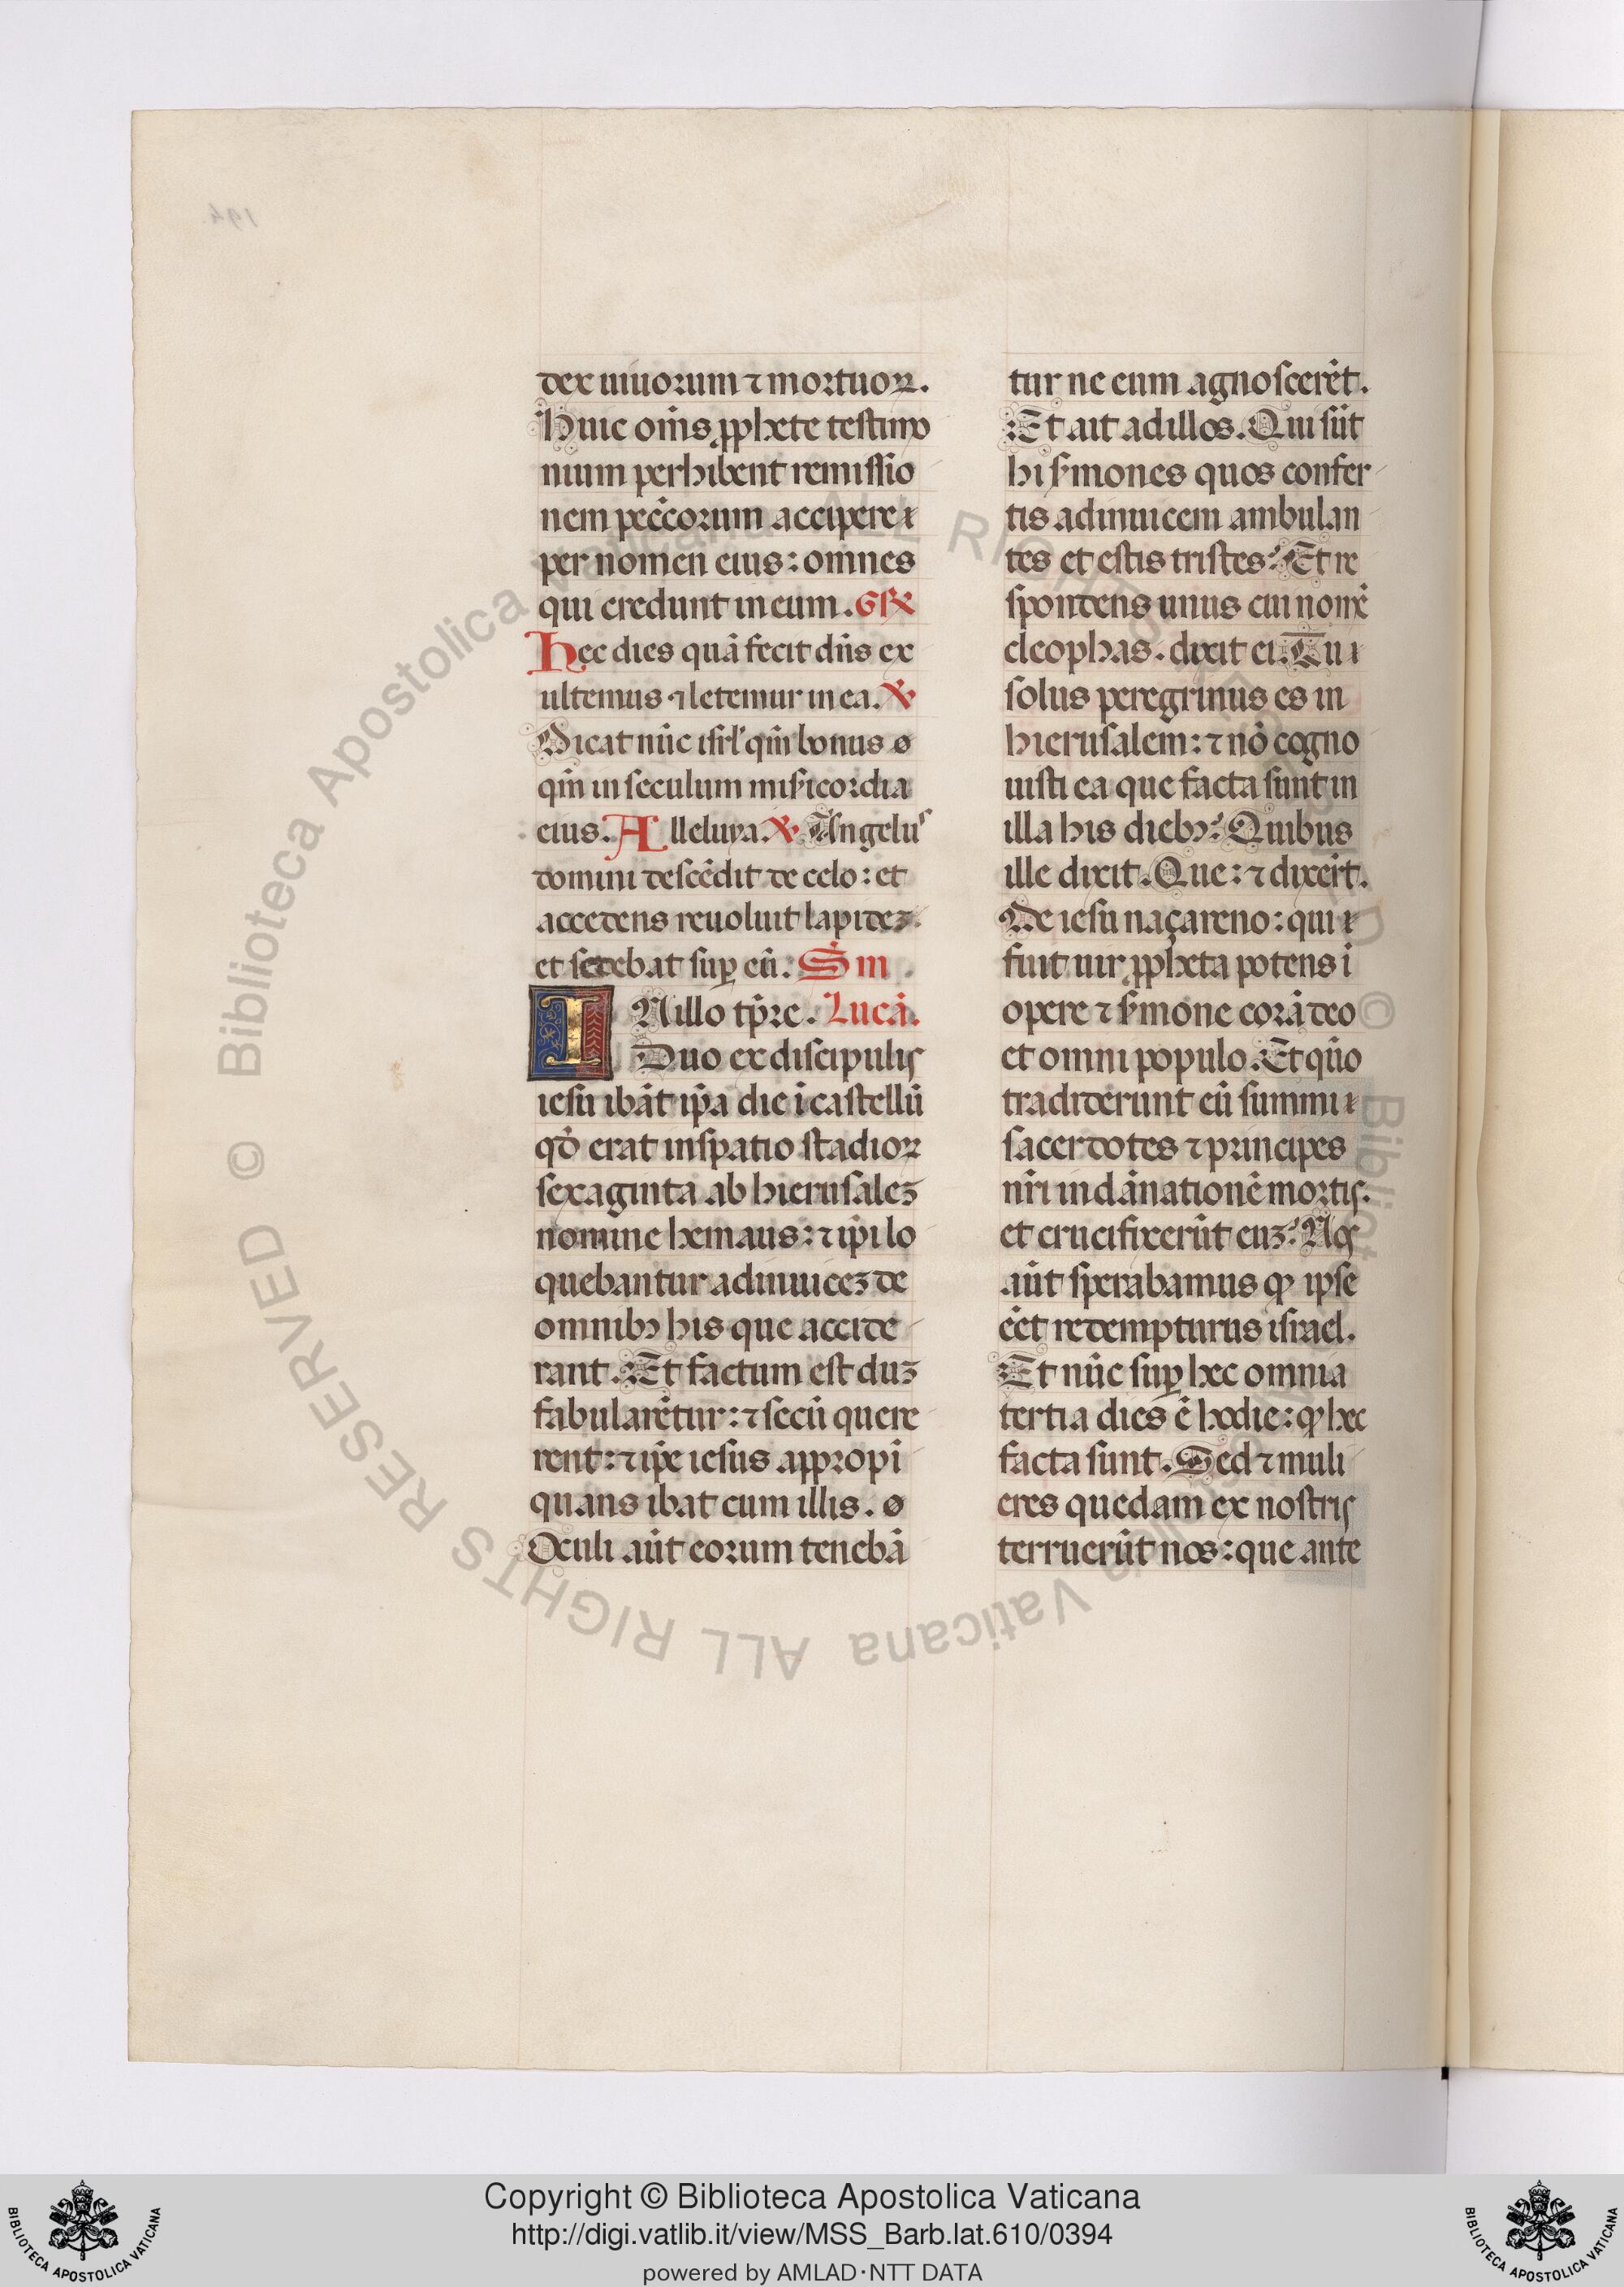 dex uiuorum ⁊ mortuoꝝ.
Huic om̄s ꝓphete testimo
nium perhibent remissio
nem pecc̄orum accipere
per nomen eius: omnes
qui credunt in eum. GR̄
Hec dies quā fecit dn̄s ex
ultemus ⁊ letemur in ea. ℣
Dicat nūc isrl̄ qm̄ bonus ø
qm̄ in seculum mis̄icordia
eius. Alleluya. ℣ Angelus
domini descēdit de celo: et
accedens reuoluit lapideꝫ.
et sedebat suꝑ eū. Sm̄
IN illo tp̄re. Lucā.
Duo ex discipulis
iesu ibāt ip̄a die i castellū
qđ erat in spatio stadioꝝ
sexaginta ab hierusaleꝫ
nomine hemaus: ⁊ ip̄i lo
quebantur adinuiceꝫ de
omnibꝫ his que accide
rant. Et factum est duꝫ
fabularētur: ⁊ secū quere
rent: ⁊ ip̄e iesus appropi
quans ibat cum illis. ø
Oculi aūt eorum tenebā
tur ne eum agnoscerēt.
Et ait ad illos. Qui sūt
hi s̄mones quos confer
tis adinuicem ambulan
tes et estis tristes? Et re
spondens unus cui nom̄
cleophas. dixit ei. Tu
solus peregrinus es in
hierusalem: ⁊ nō cogno
uisti ea que facta sunt in
illa his diebꝫ? Quibus
ille dixit. Que: ⁊ dixert̄.
De iesu naçareno: qui
fuit uir ꝓpheta potens i
opere ⁊ s̄mone corā deo
et omni populo. Et qūo
tradiderunt eū summi
sacerdotes ⁊ principes
nr̄i in dānationē mortis.
et crucifixerūt euꝫ? Nos
aūt sperabamus ꝙ ipse
eēt redempturus israel.
Et nūc suꝑ hec omnia
tertia dies ē hodie: ꝙ hec
facta sunt. Sed ⁊ muli
eres quedam ex nostris
terruerūt nos: que ante
194
© Biblioteca Apostolica Vaticana ALL RIGHTS RESERVED
Copyright © Biblioteca Apostolica Vaticana
http://digi.vatlib.it/view/MSS_Barb.lat.610/0394
powered by AMLAD·NTT DATA
BIBLIOTECA APOSTOLICA VATICANA
BIBLIOTECA APOSTOLICA VATICANA